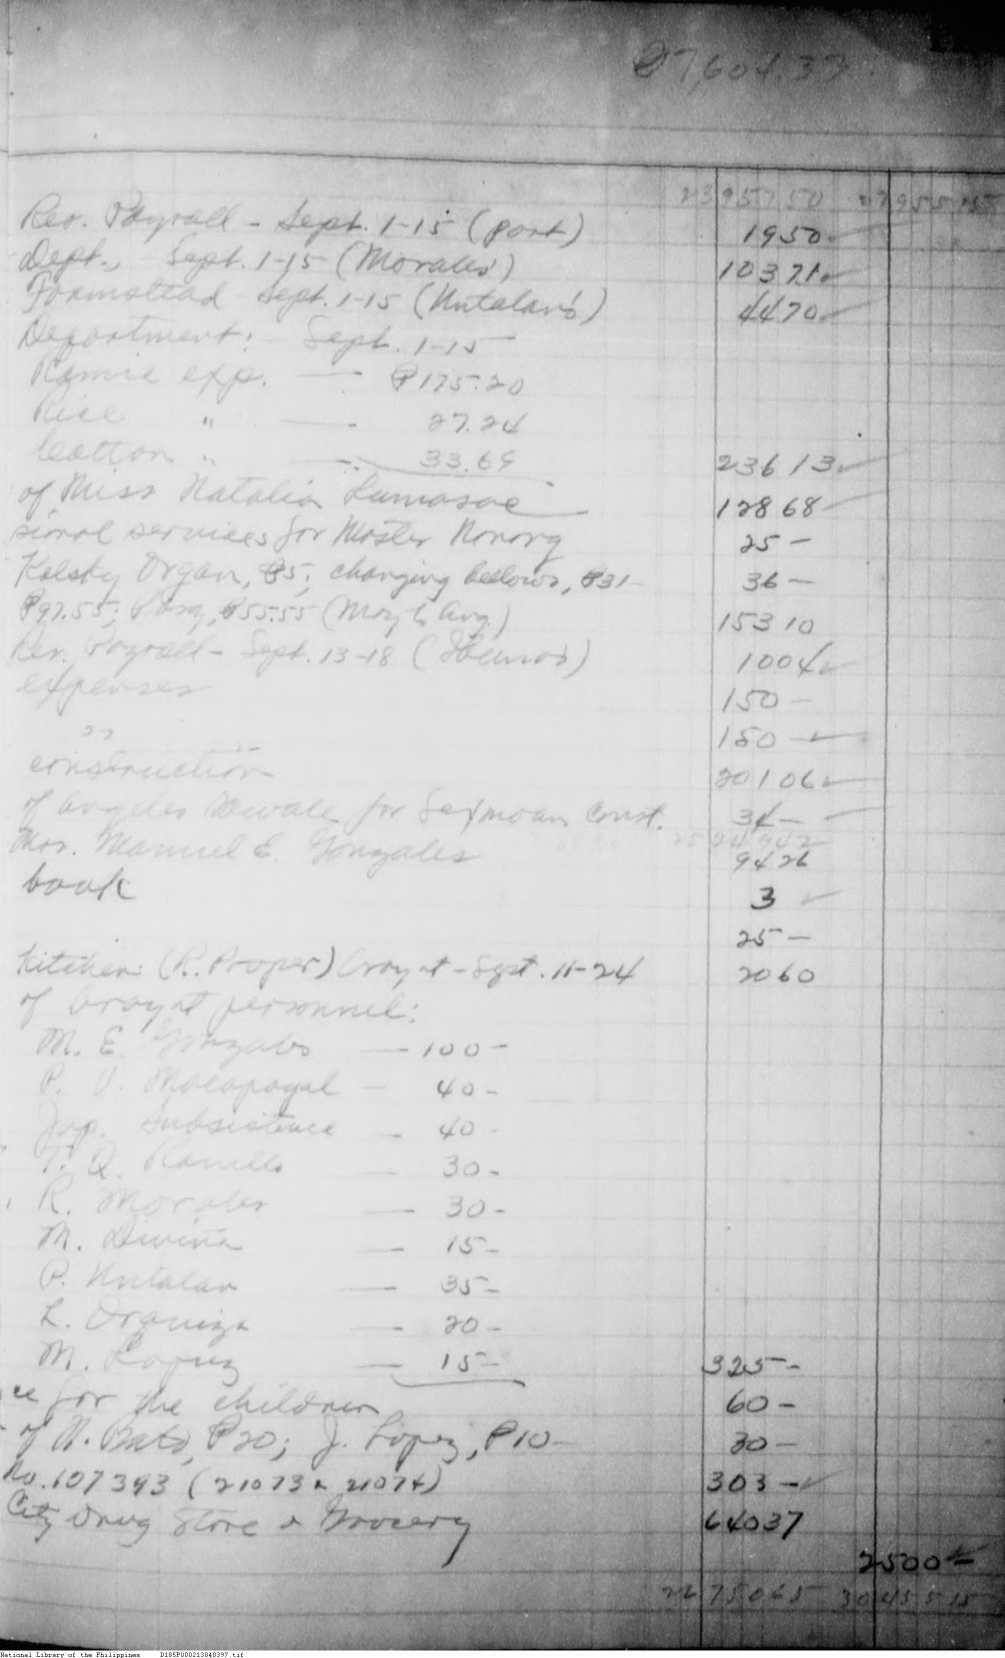 ₱7,604.37
2395750 2795515
Rev. Payroll - Sept. 1-15 (part) 1950
Dept., - Sept. 1-15 (Morales) 10371
Farmstead - Sept. 1-15 (Untalan's) 4470
Department: - Sept. 1-15
Ramie exp. — ₱175.20
Rice " — 27.24
Cotton " — 33.69 23613
of Miss Natalia 12868
sional services for Master 25 -
Organ, ₱5; changing bellows, ₱31- 36 -
₱97.55; ₱55.55 (May & Aug.) 15310
Rev. Payroll - Sept. 13-18 1004
expenses 150 -
" 150 -
construction 20106
of Angeles for Const. 34 -
2524942
Mrs. Manuel E. Gonzales 9426
book 3
25 -
Kitchen: (R. Proper) - Sept. 11-24 2060
of personnel:
M. E. Gonzales — 100 -
P. V. Macapagal — 40 -
Jap. Subsistence — 40 -
T. Q. — 30 -
R. Morales — 30 -
M. Divina — 15 -
P. Untalan — 35 -
L. — 20 -
M. Lopez — 15 - 325 -
ce for the children 60 -
of N. ₱20; J. Lopez, ₱10 - 30 -
No. 607393 (21073 & 21074) 303 -
City Drug Store & Grocery 64037
2500 -
2675065 3045515
National Library of the Philippines D185P000213040397.tif